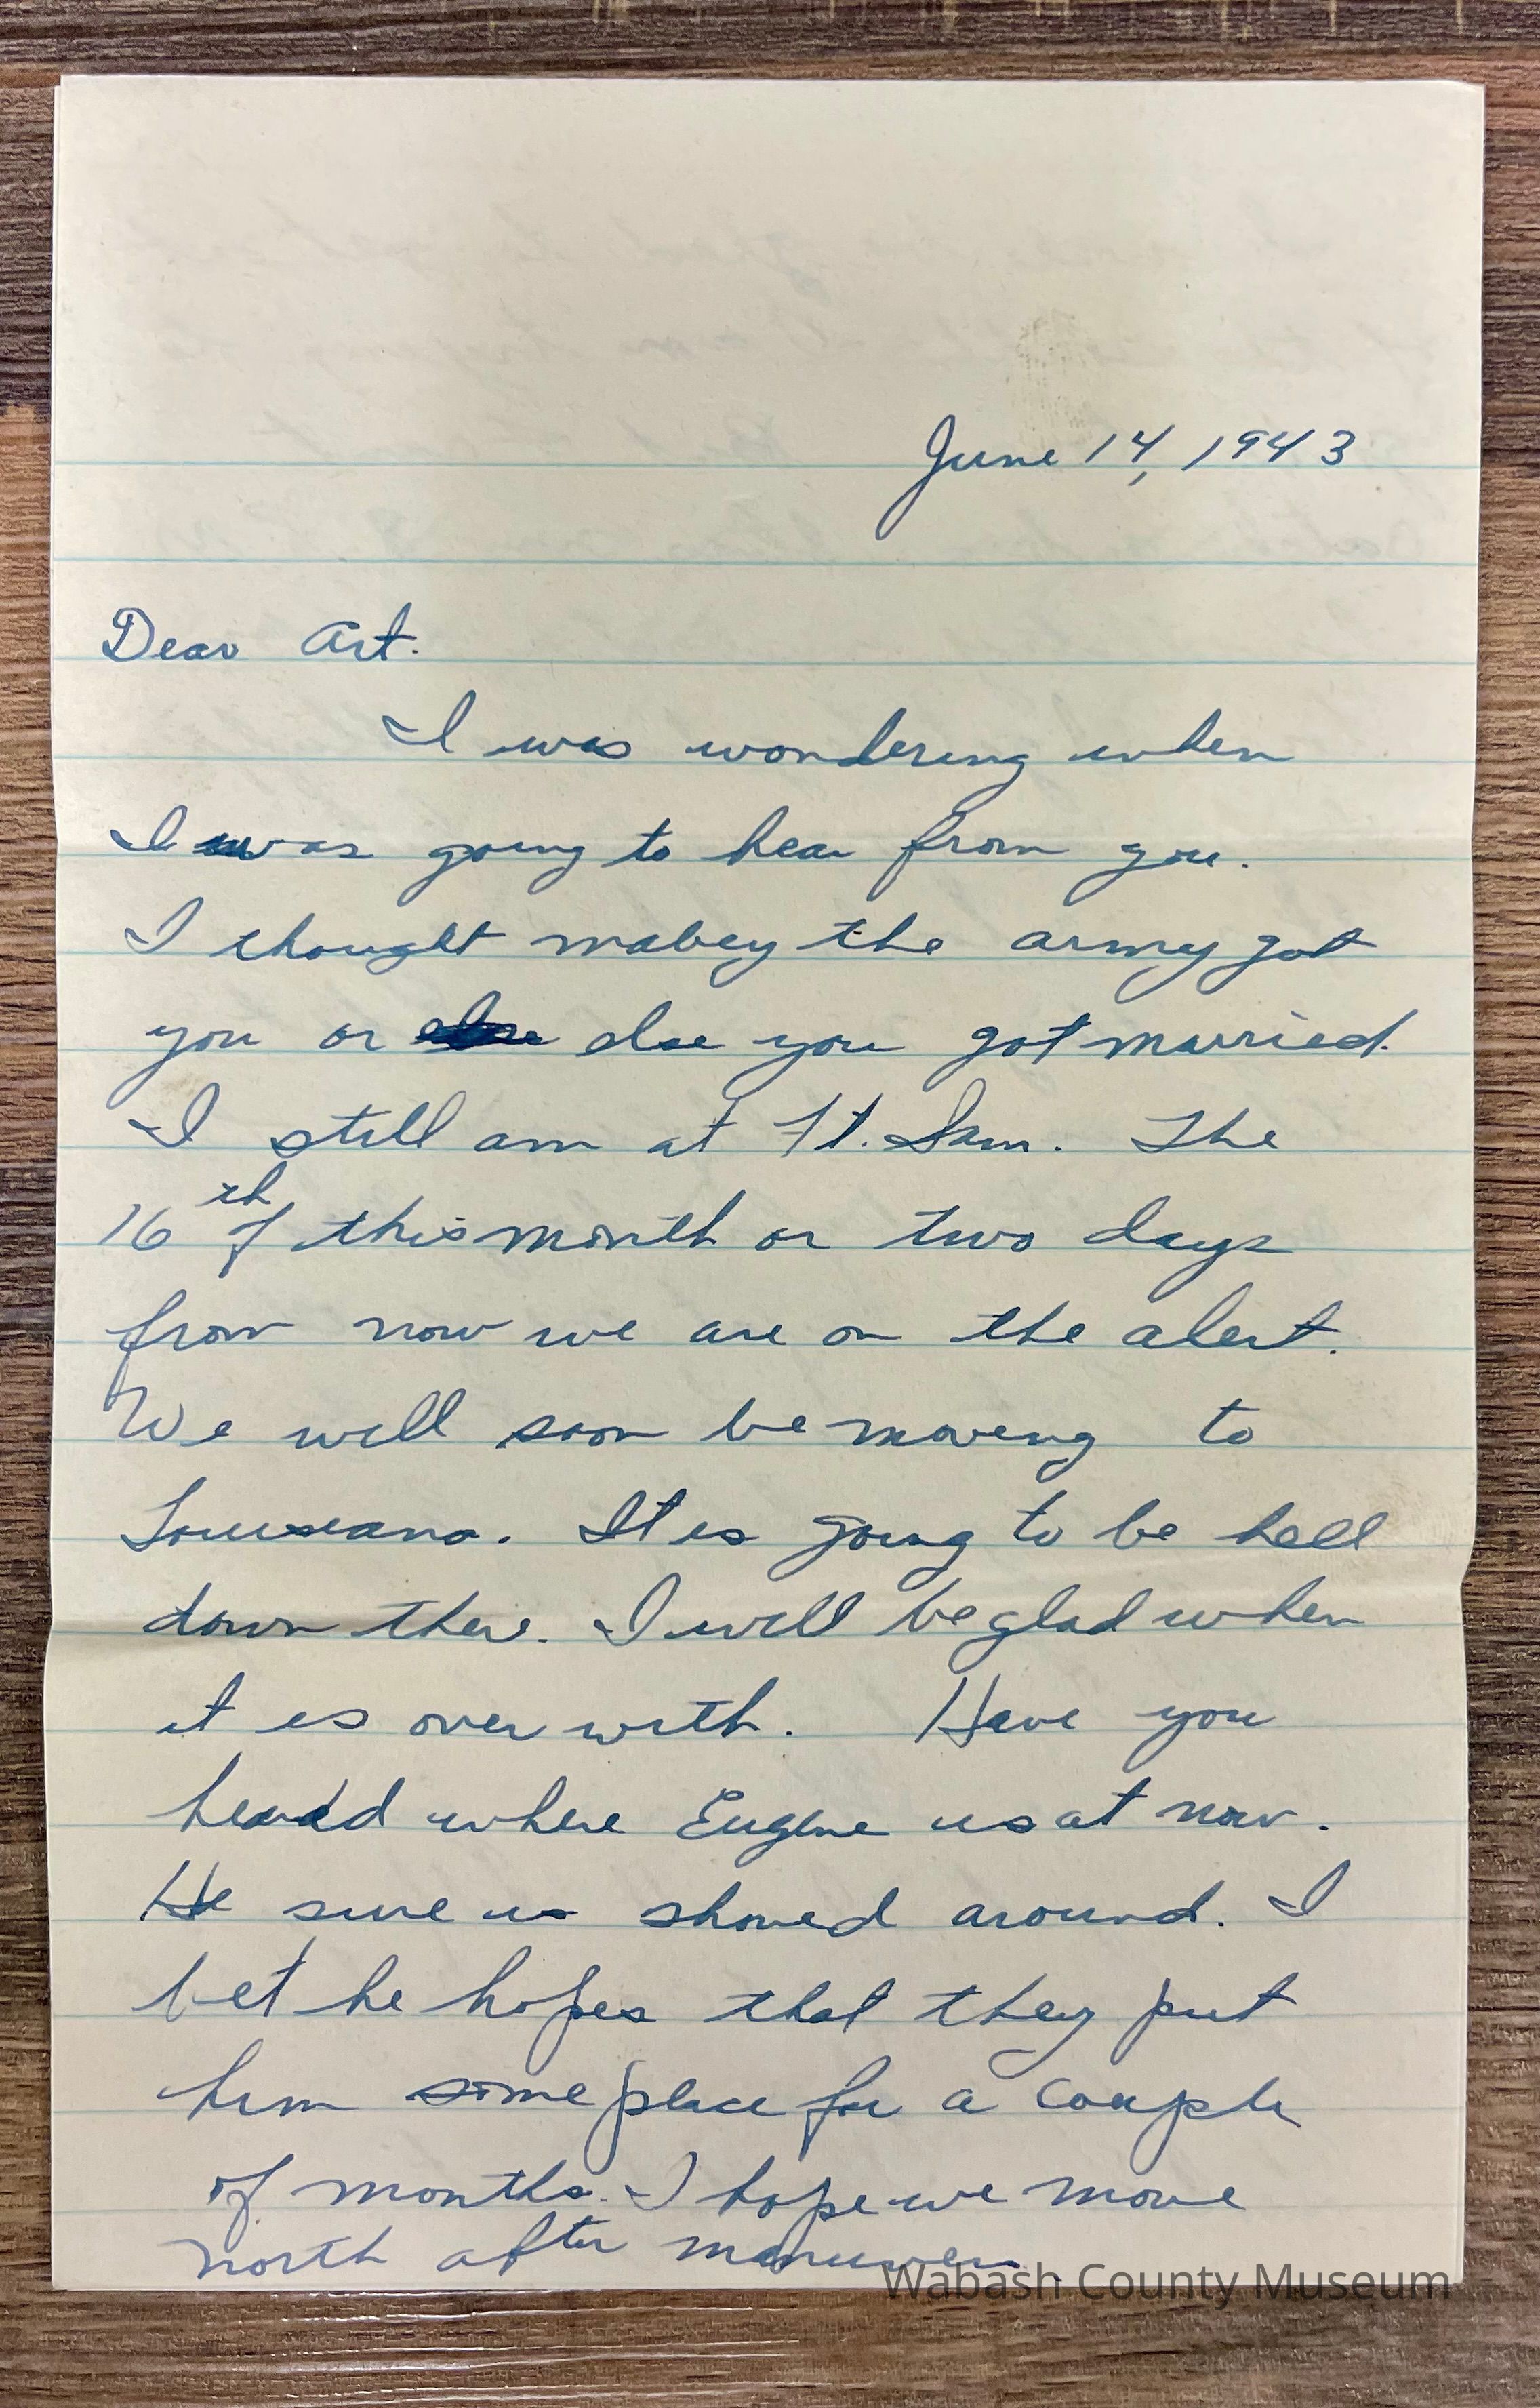 June 14, 1943
Dear Art.
I was wondering when
I was going to hear from you.
I thought mabey the army got
you or else you got married.
I still am at Ft. Sam. The
16th of this month or two days
from now we are on the alert.
We will soon be moving to
Louiseana. It is going to be hell
down there. I will be glad when
it is over with. Have you
heard where Eugene is at now.
He sure is shoved around. I
bet he hopes that they put
him some place for a couple
of months. I hope we move
north after manuvers.
Wabash County Museum